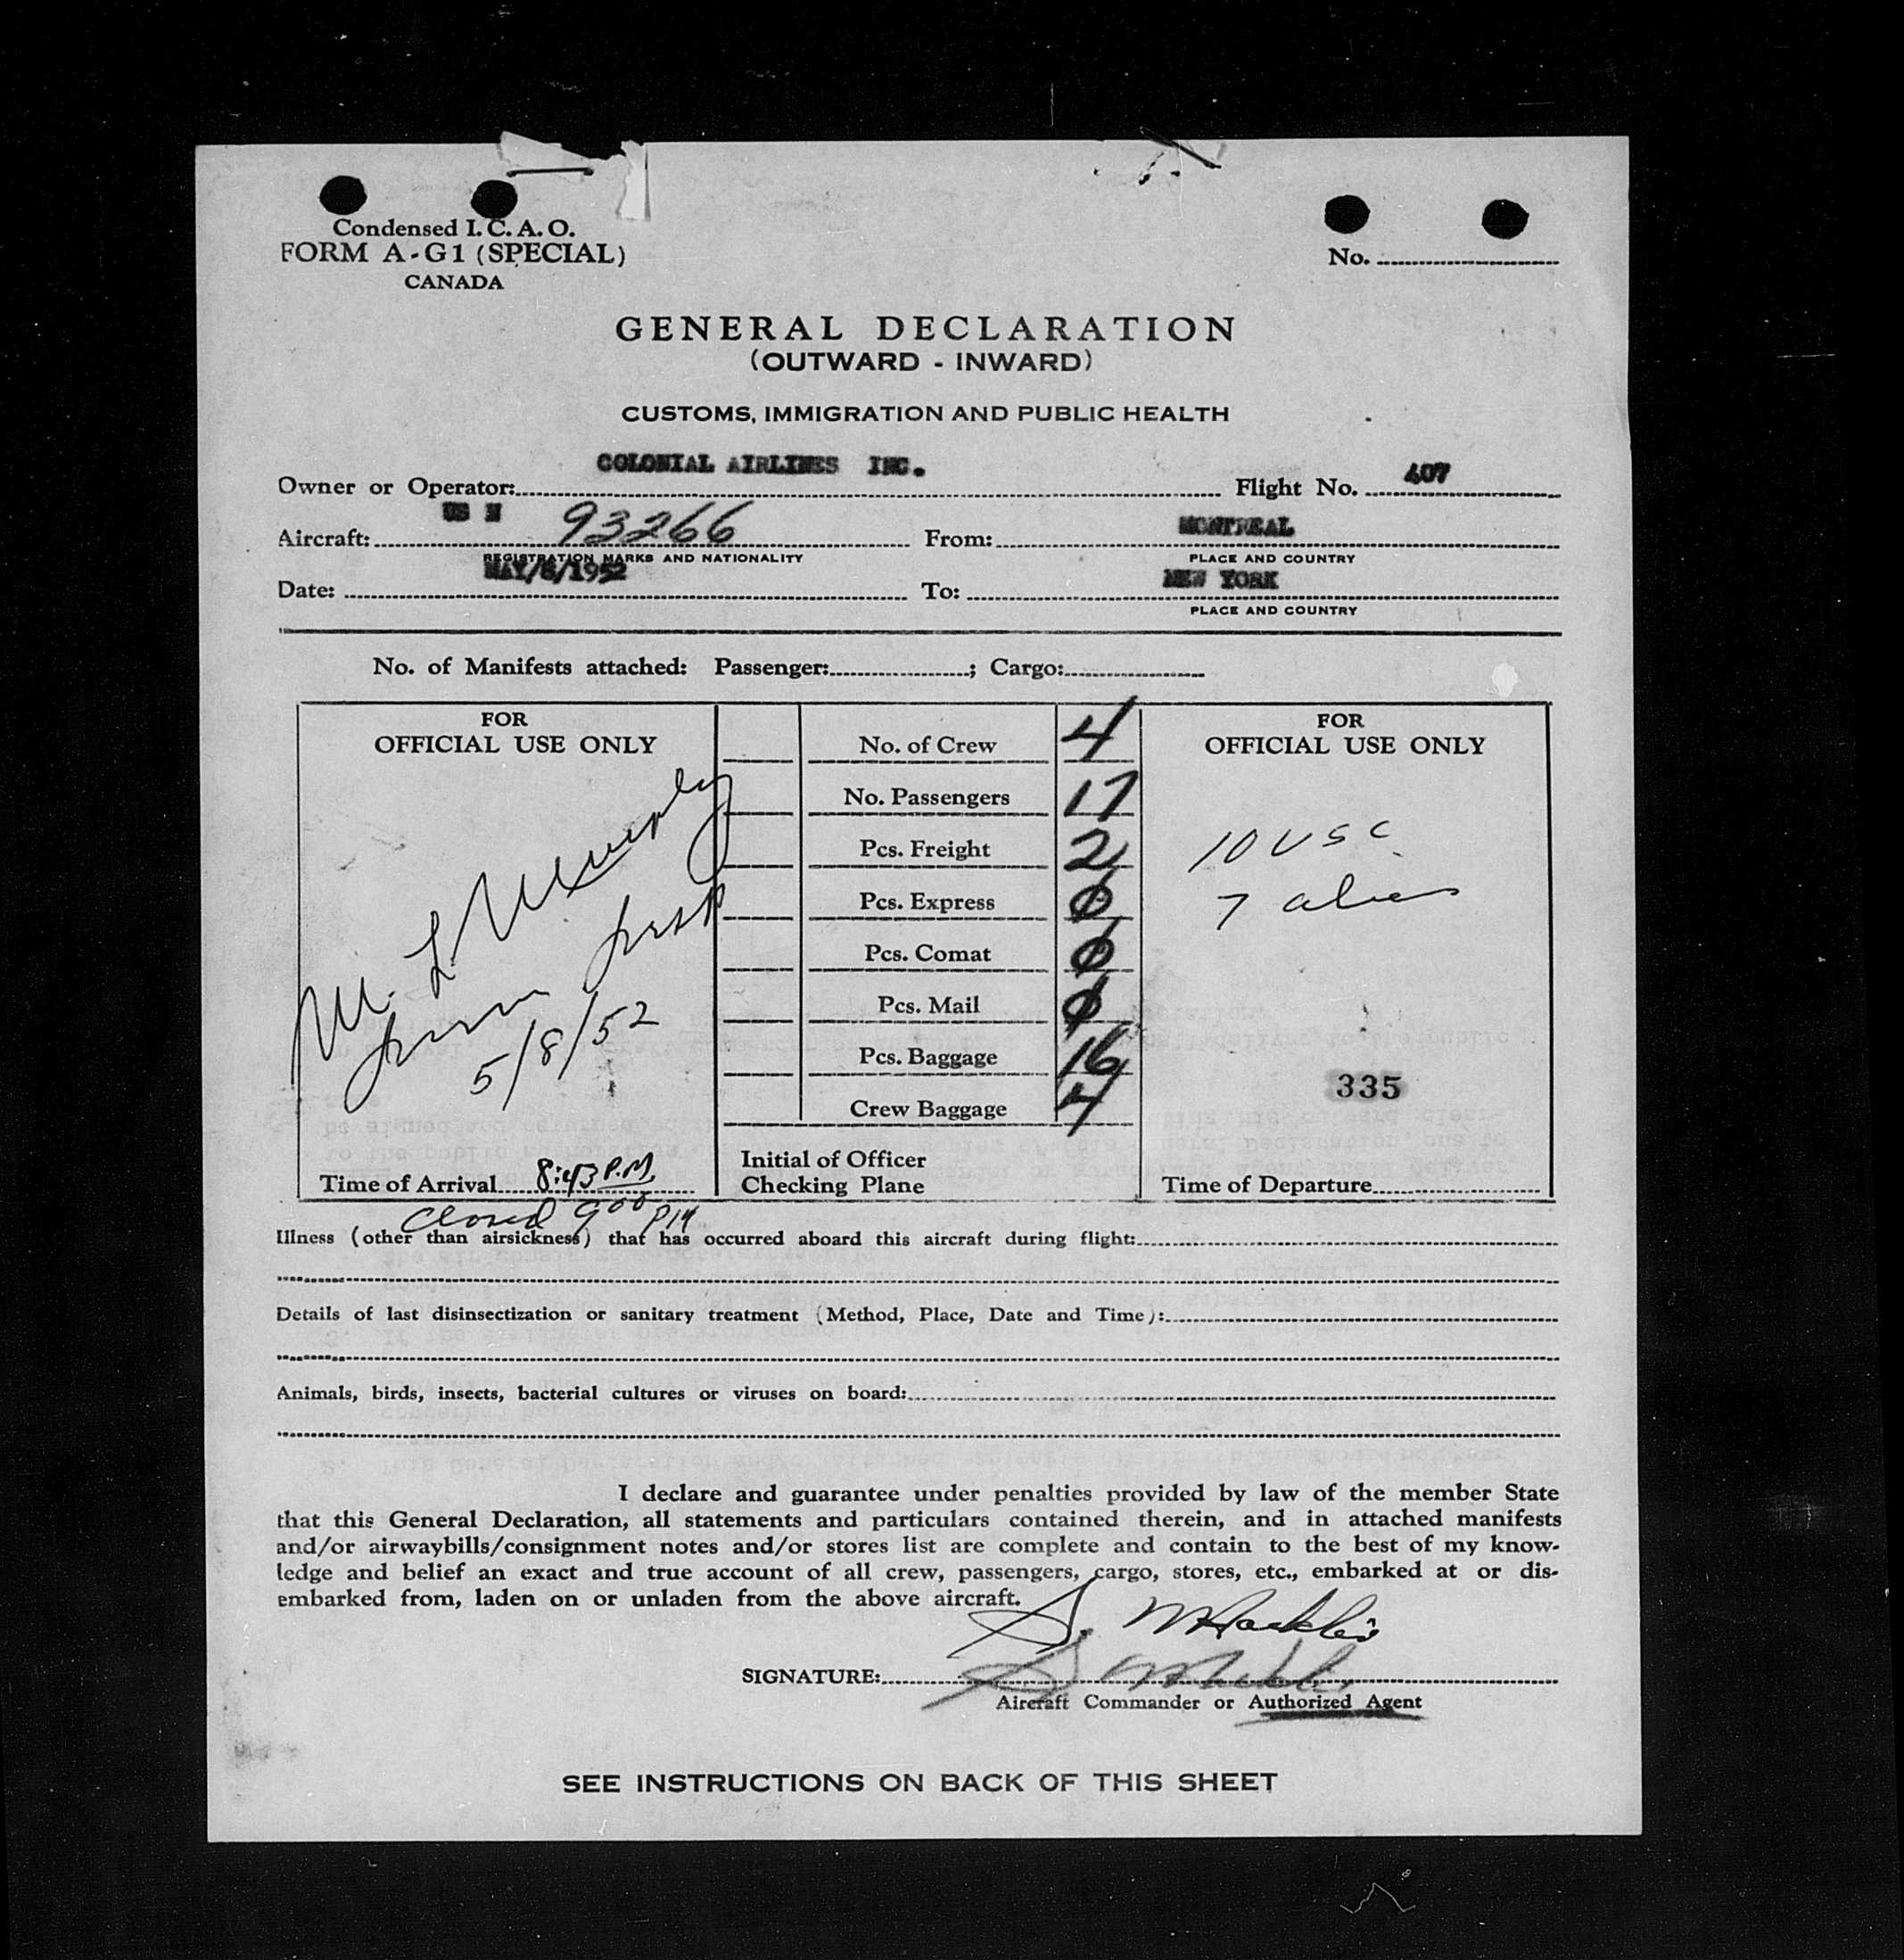 Condensed I. C. A. O.
FORM A-G1 (SPECIAL)
CANADA
No.
GENERAL DECLARATION
(OUTWARD - INWARD)
CUSTOMS, IMMIGRATION AND PUBLIC HEALTH
Owner or Operator: COLONIAL AIRLINES INC. Flight No. 407
Aircraft: US N 93266 From: MONTREAL
REGISTRATION MARKS AND NATIONALITY PLACE AND COUNTRY
Date: MAY/8/1952 To: NEW YORK
PLACE AND COUNTRY
No. of Manifests attached: Passenger: ; Cargo:
FOR
OFFICIAL USE ONLY
M. L. Murphy
5/8/52
Time of Arrival 8:43 P.M.
Closed 9 00 PM
No. of Crew 4
No. Passengers 17
Pcs. Freight 2
Pcs. Express 0
Pcs. Comat 0
Pcs. Mail 0
Pcs. Baggage 16
Crew Baggage 4
Initial of Officer
Checking Plane
FOR
OFFICIAL USE ONLY
10 USC
7 alien
335
Time of Departure
Illness (other than airsickness) that has occurred aboard this aircraft during flight:
Details of last disinsectization or sanitary treatment (Method, Place, Date and Time):
Animals, birds, insects, bacterial cultures or viruses on board:
I declare and guarantee under penalties provided by law of the member State
that this General Declaration, all statements and particulars contained therein, and in attached manifests
and/or airwaybills/consignment notes and/or stores list are complete and contain to the best of my know-
ledge and belief an exact and true account of all crew, passengers, cargo, stores, etc., embarked at or dis-
embarked from, laden on or unladen from the above aircraft.
SIGNATURE:
Aircraft Commander or Authorized Agent
SEE INSTRUCTIONS ON BACK OF THIS SHEET